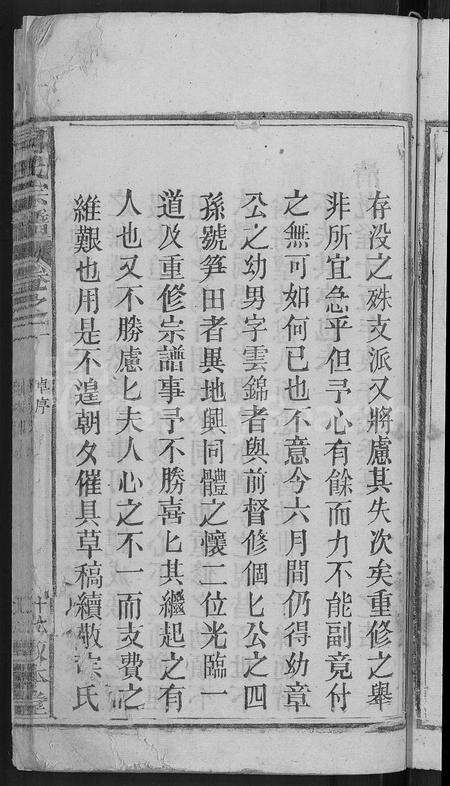 存没之殊支派又將慮其失次矣重修之舉
非所宜急乎但予心有餘而力不能副竟付
之無可如何已也不意今六月間仍得幼章
公之幼男字雲錦者與前督修個匕公之四
孫號笋田者異地興同體之懷二位光臨一
道及重修宗譜事予不勝喜匕其繼起之有
人也又不勝慮匕夫人心之不一而支費之
維艱也用是不遑朝夕催具草稿續敬族氏
宗譜 卷之一